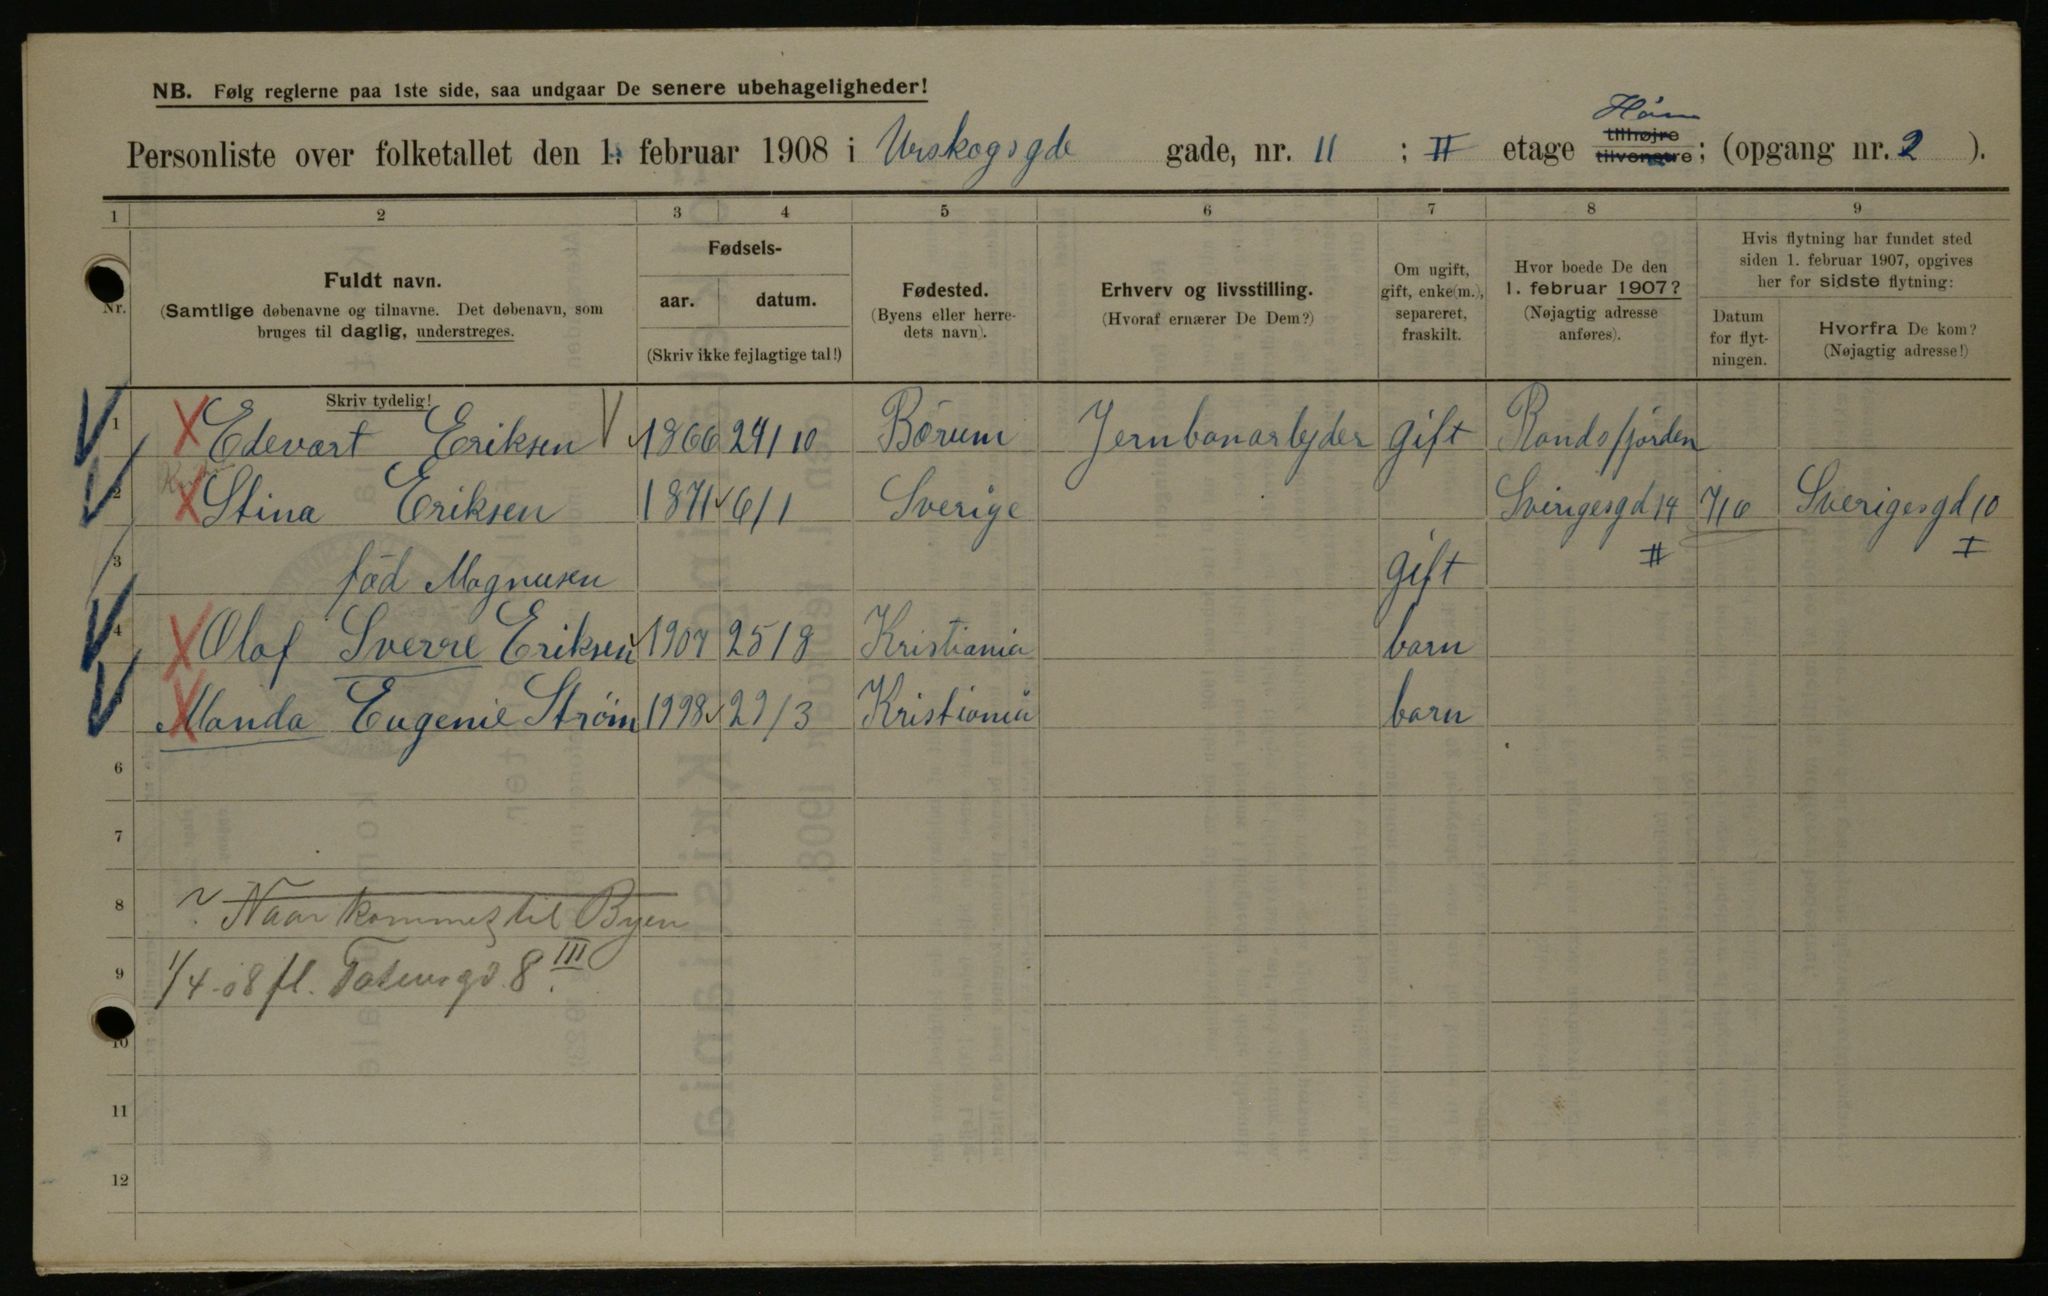 NB. Følg reglerne paa 1ste side, saa undgaar De senere ubehageligheder!
Personliste over folketallet den 1. februar 1908 i Urskogsgde gade, nr. 11 ; II etage tilhøjre tilvenstre; (opgang nr. 2 ).
1 2 3 4 5 6 7 8 9
Nr.
Fuldt navn.
(Samtlige døbenavne og tilnavne. Det døbenavn, som
bruges til daglig, understreges.
Fødsels-
aar. datum.
(Skriv ikke fejlagtige tal!)
Fødested.
(Byens eller herre-
dets navn).
Erhverv og livsstilling.
(Hvoraf ernærer De Dem?)
Om ugift,
gift, enke(m.),
separeret,
fraskilt.
Hvor boede De den
1. februar 1907?
(Nøjagtig adresse
anføres).
Hvis flytning har fundet sted
siden 1. februar 1907, opgives
her for sidste flytning:
Datum
for flyt-
ningen.
Hvorfra De kom?
(Nøjagtig adresse!)
Skriv tydelig!
1 Edevart Eriksen 1866 24/10 Bærum Jernbanarbejder gift Randsfjorden
2 Stina Eriksen 1871 6/1 Sverige Svingesgd 14 7/6 Sverigesgd 10
3 fød Magnusen gift II I
4 Olaf Sverre Eriksen 1907 25/8 Kristiania barn
Manda Eugenie Strøm 1998 29/3 Kristiania barn
6
7
8 ? Naar kommet til Byen
9 1/4-08 fl. Totensgd. 8 III
10
11
12